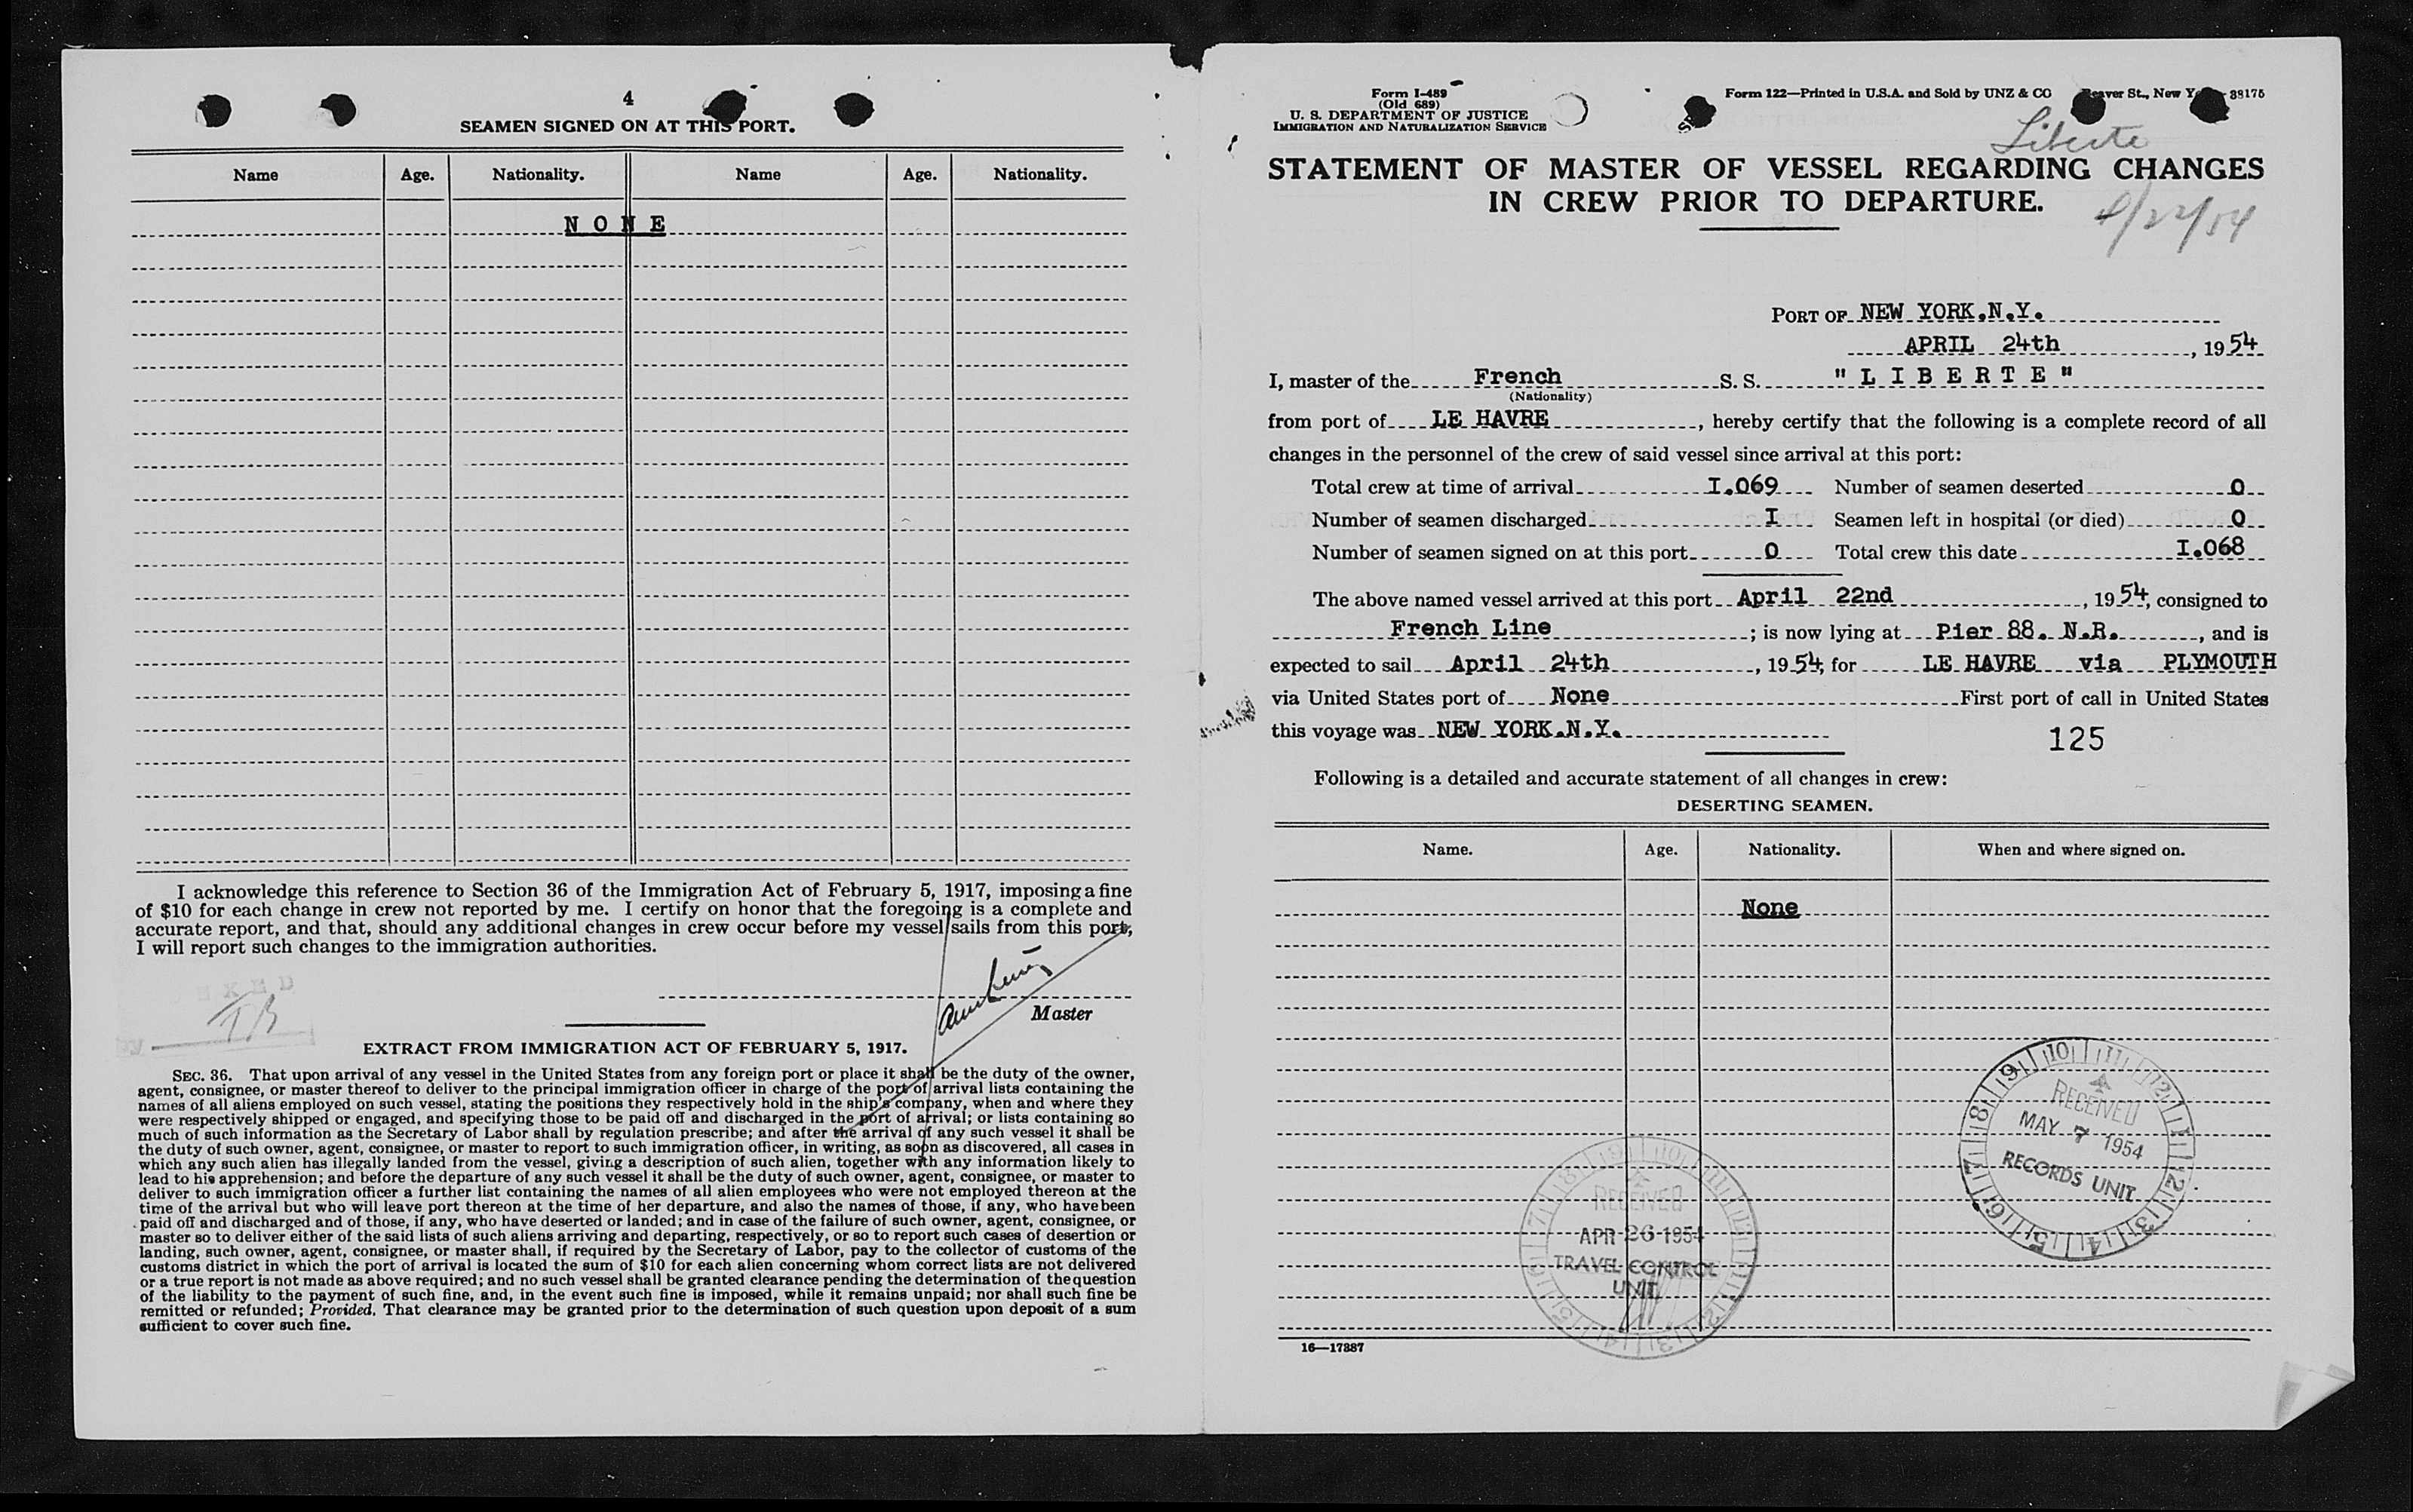 4
SEAMEN SIGNED ON AT THIS PORT.
Name Age. Nationality. Name Age. Nationality.
N O N E
I acknowledge this reference to Section 36 of the Immigration Act of February 5, 1917, imposing a fine
of $10 for each change in crew not reported by me. I certify on honor that the foregoing is a complete and
accurate report, and that, should any additional changes in crew occur before my vessel sails from this port,
I will report such changes to the immigration authorities.
Master
EXTRACT FROM IMMIGRATION ACT OF FEBRUARY 5, 1917.
SEC. 36. That upon arrival of any vessel in the United States from any foreign port or place it shall be the duty of the owner,
agent, consignee, or master thereof to deliver to the principal immigration officer in charge of the port of arrival lists containing the
names of all aliens employed on such vessel, stating the positions they respectively hold in the ship's company, when and where they
were respectively shipped or engaged, and specifying those to be paid off and discharged in the port of arrival; or lists containing so
much of such information as the Secretary of Labor shall by regulation prescribe; and after the arrival of any such vessel it shall be
the duty of such owner, agent, consignee, or master to report to such immigration officer, in writing, as soon as discovered, all cases in
which any such alien has illegally landed from the vessel, giving a description of such alien, together with any information likely to
lead to his apprehension; and before the departure of any such vessel it shall be the duty of such owner, agent, consignee, or master to
deliver to such immigration officer a further list containing the names of all alien employees who were not employed thereon at the
time of the arrival but who will leave port thereon at the time of her departure, and also the names of those, if any, who have been
paid off and discharged and of those, if any, who have deserted or landed; and in case of the failure of such owner, agent, consignee, or
master so to deliver either of the said lists of such aliens arriving and departing, respectively, or so to report such cases of desertion or
landing, such owner, agent, consignee, or master shall, if required by the Secretary of Labor, pay to the collector of customs of the
customs district in which the port of arrival is located the sum of $10 for each alien concerning whom correct lists are not delivered
or a true report is not made as above required; and no such vessel shall be granted clearance pending the determination of the question
of the liability to the payment of such fine, and, in the event such fine is imposed, while it remains unpaid; nor shall such fine be
remitted or refunded; Provided, That clearance may be granted prior to the determination of such question upon deposit of a sum
sufficient to cover such fine.
Form I-489
(Old 689)
U. S. DEPARTMENT OF JUSTICE
IMMIGRATION AND NATURALIZATION SERVICE
Form 122—Printed in U.S.A. and Sold by UNZ & CO St., New 38175
Liberte
STATEMENT OF MASTER OF VESSEL REGARDING CHANGES
IN CREW PRIOR TO DEPARTURE.
4/22/54
PORT OF NEW YORK.N.Y.
APRIL 24th, 1954
I, master of the French S. S. " L I B E R T E "
(Nationality)
from port of LE HAVRE, hereby certify that the following is a complete record of all
changes in the personnel of the crew of said vessel since arrival at this port:
Total crew at time of arrival I.069 Number of seamen deserted 0
Number of seamen discharged I Seamen left in hospital (or died) 0
Number of seamen signed on at this port 0 Total crew this date I.068
The above named vessel arrived at this port April 22nd, 1954, consigned to
French Line; is now lying at Pier 88. N.R., and is
expected to sail April 24th, 1954, for LE HAVRE via PLYMOUTH
via United States port of None First port of call in United States
this voyage was NEW YORK.N.Y.
125
Following is a detailed and accurate statement of all changes in crew:
DESERTING SEAMEN.
Name. Age. Nationality. When and where signed on.
None
10 11 12 1 2 3 4 5 6 7 8 9
RECEIVED
MAY 7 1954
RECORDS UNIT
9 10 11 12 1 2 3 4 5 6 7 8
RECEIVED
APR 26 1954
TRAVEL CONTROL
UNIT
16—17387